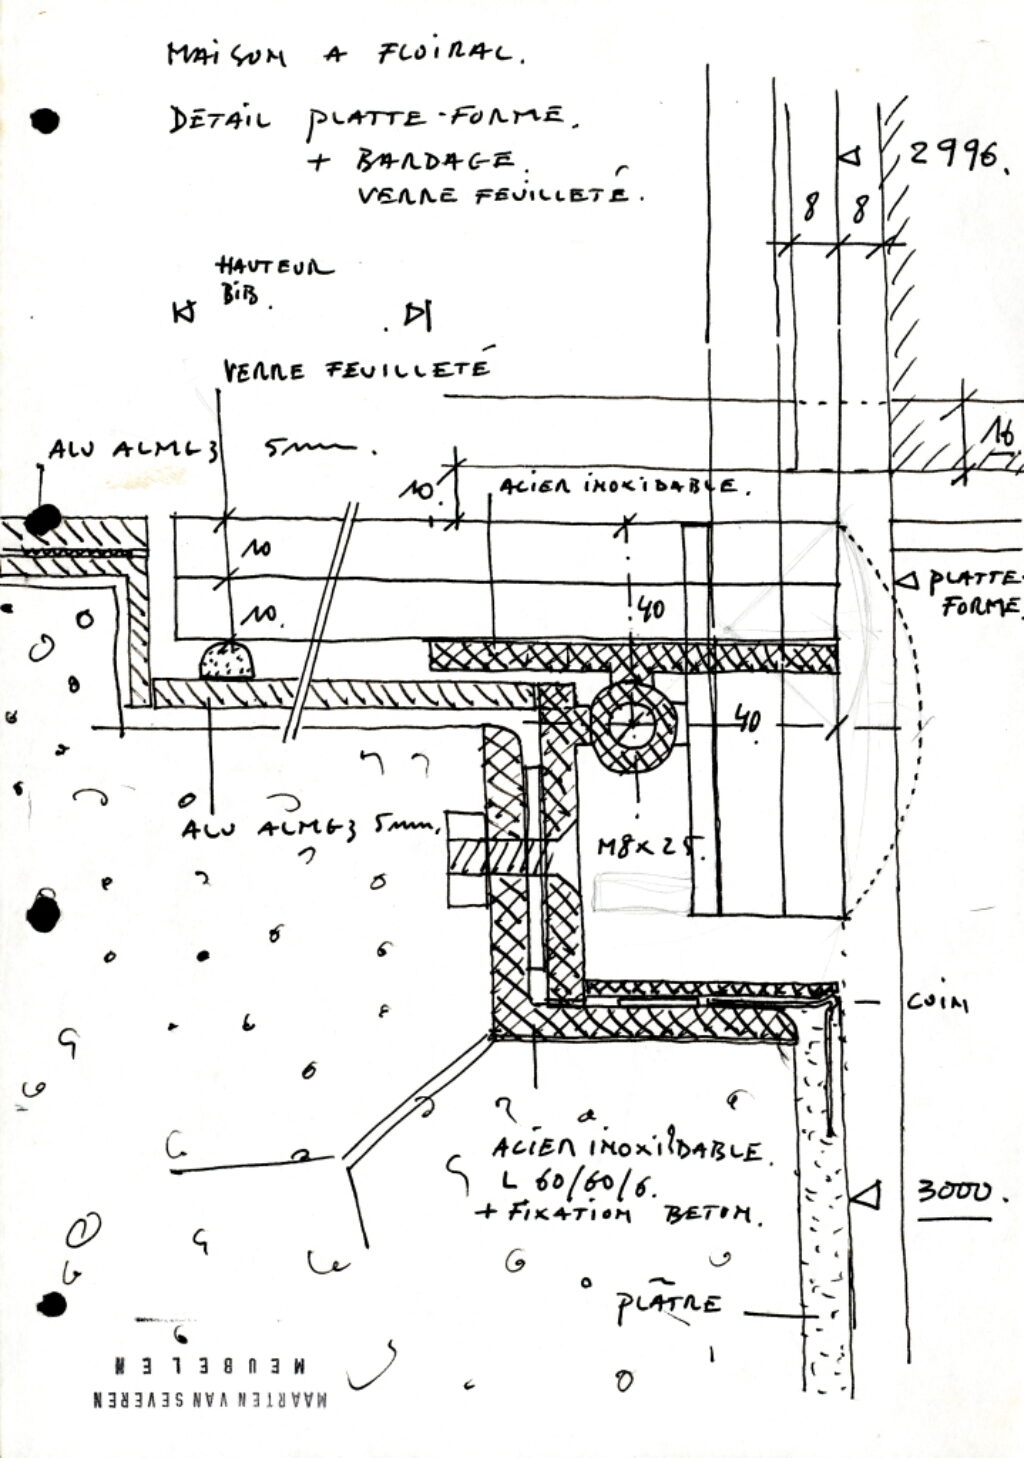 MAISON A FLOIRAC.
DETAIL PLATTE-FORME.
+ BARDAGE.
VERRE FEUILLETÉ.
2996.
8 8
HAUTEUR
BIB.
VERRE FEUILLETÉ
ALU ALMG3 5mm.
16
10.
ACIER INOXIDABLE.
10
10.
40
PLATTE-
FORME.
40
ALU ALMG3 5mm.
M8x25.
COIN
ACIER INOXIDABLE.
L 60/60/6.
+ FIXATION BETON.
3000.
PLATRE
MAARTEN VAN SEVEREN
MEUBELEN